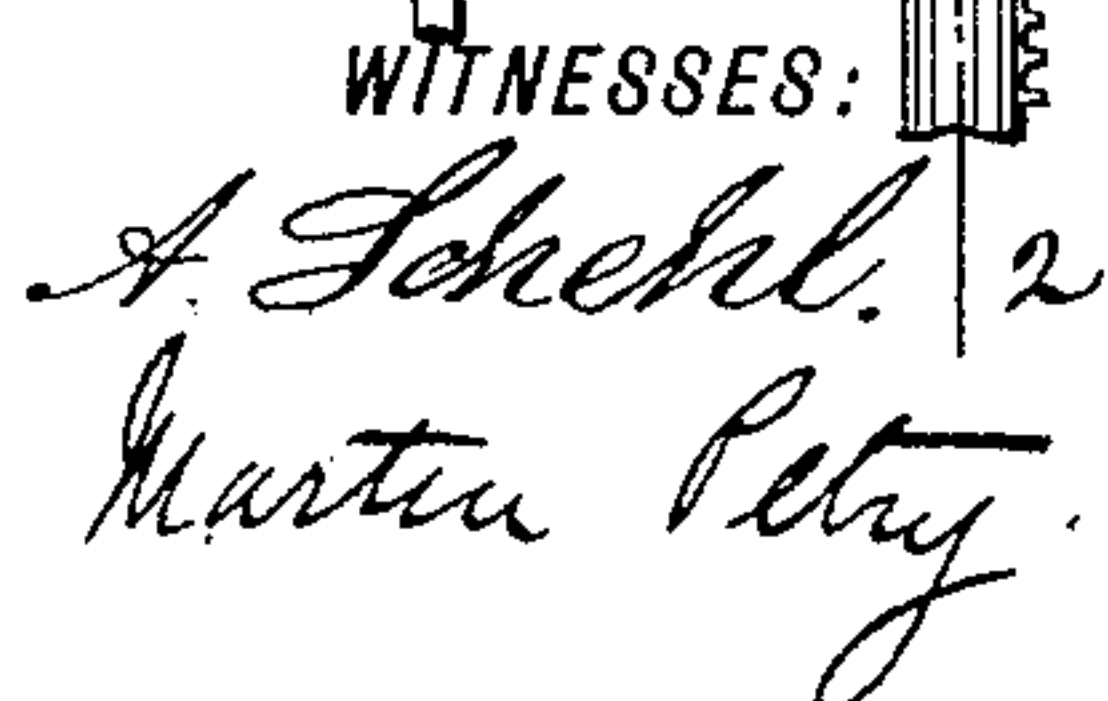 WITNESSES:
A. Schehl. 2
Martin Petry.